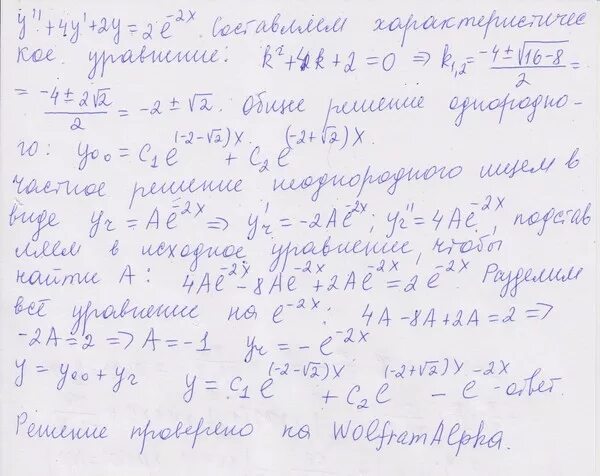 y''+4y'+2y=2e^{-2x}. Составляем характеристичес
кое уравнение: k²+4k+2=0 ⇒ k_{1,2}=\frac{-4±√16-8}{2}=
=\frac{-4±2√2}{2}=-2±√2. Общее решение однородно-
го: y_{оо}=C_1e^{(-2-√2)x}+C_2e^{(-2+√2)x}.
частное решение неоднородного ищем в
виде y_ч=Ae^{-2x} ⇒ y'_ч=-2Ae^{-2x}; y''_ч=4Ae^{-2x}, подстав
ляем в исходное уравнение, чтобы
найти A: 4Ae^{-2x}-8Ae^{-2x}+2Ae^{-2x}=2e^{-2x}. Разделим
всё уравнение на e^{-2x}: 4A-8A+2A=2 ⇒
-2A=2 ⇒ A=-1 y_ч=-e^{-2x}
y=y_{оо}+y_ч y=C_1e^{(-2-√2)x}+C_2e^{(-2+√2)x}-e^{-2x}-ответ.
Решение проверено на WolframAlpha.